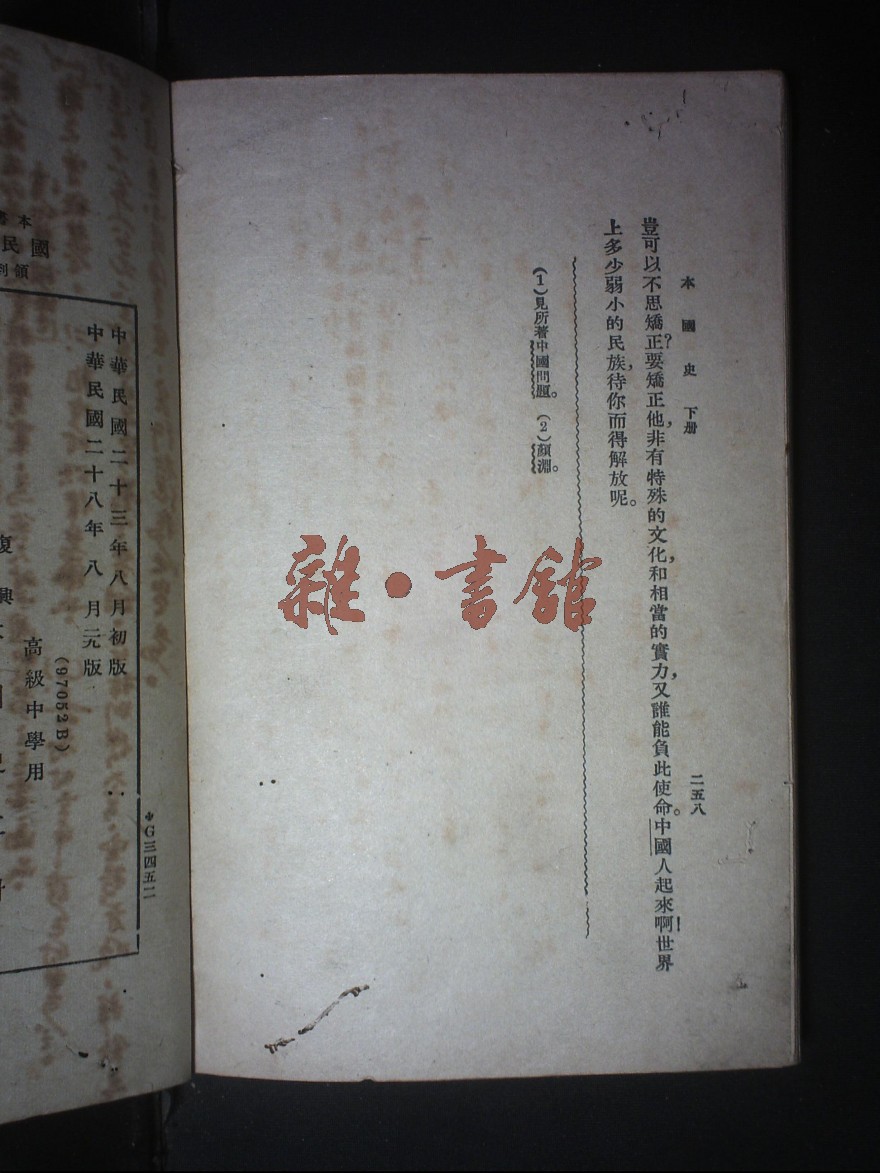 本國史 下册
二五八
豈可以不思矯正?要矯正他,非有特殊的文化,和相當的實力,又誰能負此使命。中國人起來啊!世界
上多少弱小的民族,待你而得解放呢。
(1)見所著中國問題。 (2)顏淵。
雜·書館
*G三四五二
中華民國二十三年八月初版
中華民國二十八年八月元版
(97052B)
高級中學用
復興
本書
國民
領到